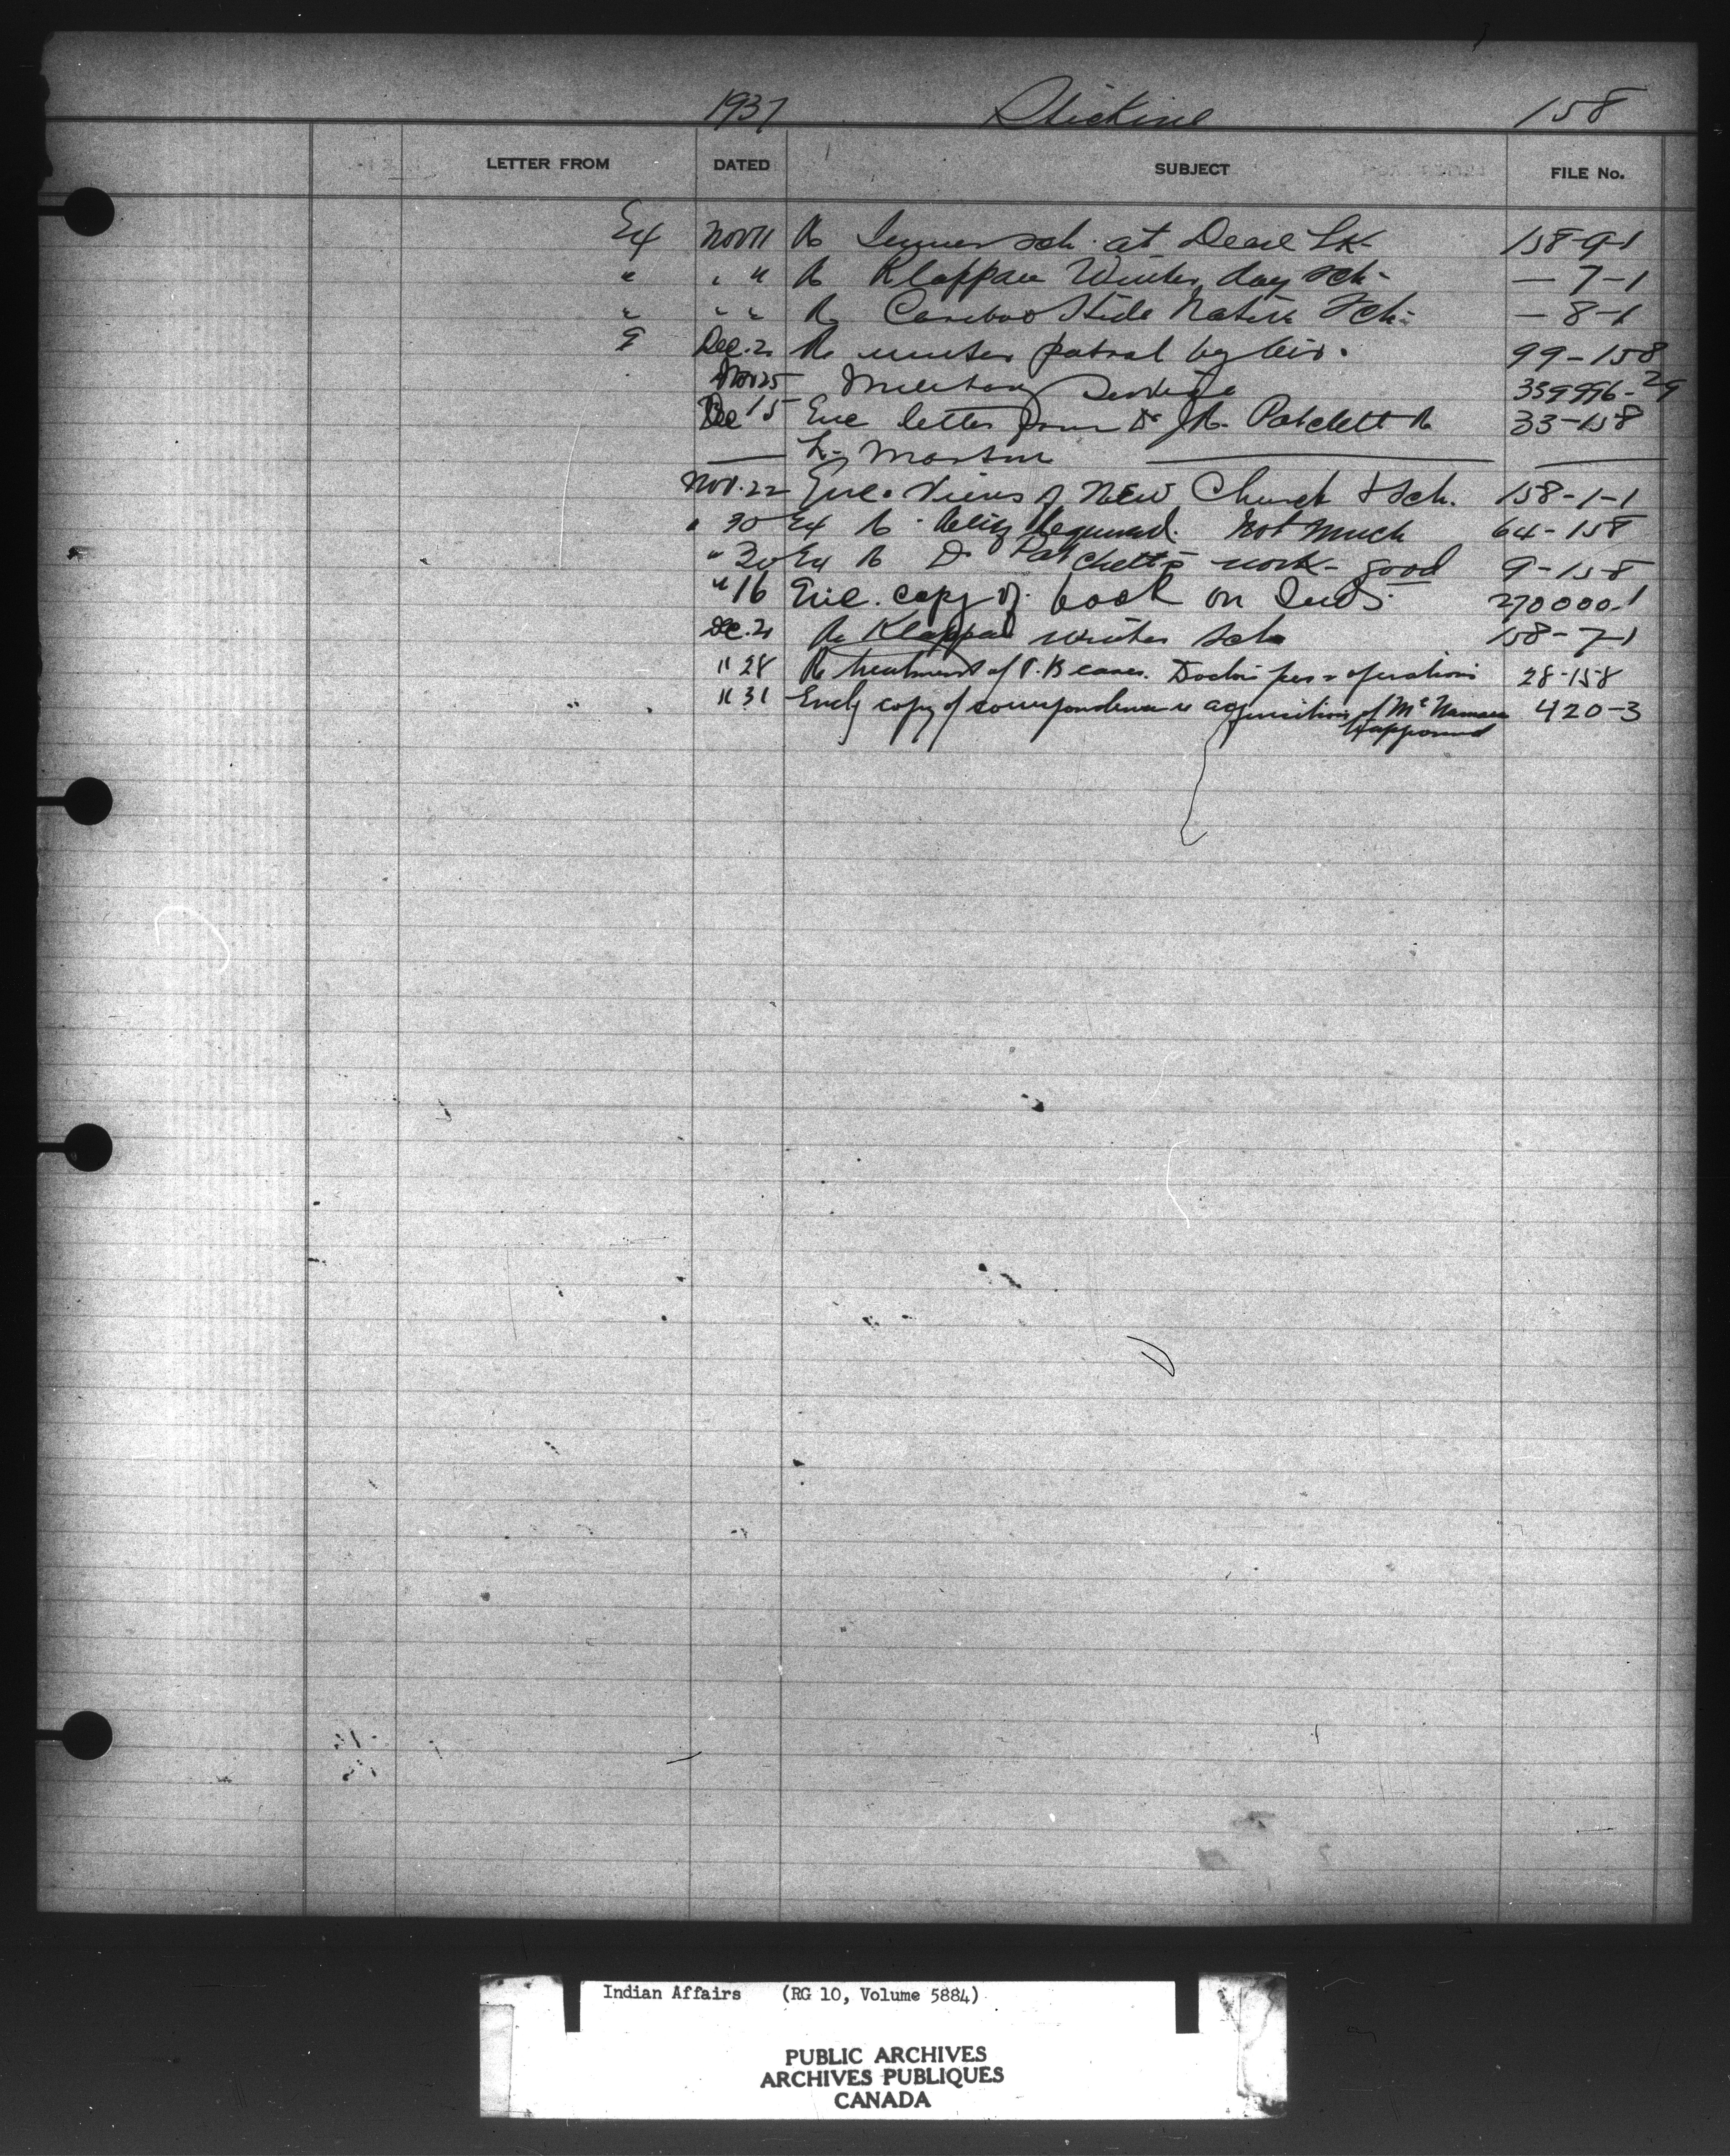 1937 Stickine 158
LETTER FROM DATED SUBJECT FILE No.
Ex Nov 11 Re Summer sch. at Dease Lk- 158-9-1
" " " Re Klappan Winter day sch- — 7-1
" " " Re Caribou Hide Native Sch- — 8-1
Dec. 21 Re winter patrol by air. 99-158
Nov 25 Military Service 339996-29
Dec 15 Enc letter from Dr J.R. Patchett Re 33-158
L. Morton
Nov. 22 Enc. Views of New Church & Sch. 158-1-1
" 30 Ex Re Required. Not Much 64-158
" 30 Ex Re Dr Patchett's work- good 9-158
" 16 Enc. copy of book on Inds 270000-1
Dec. 21 Re Klappan winter Sch 158-7-1
" 28 Re treatment of T.B cases. Doctors fees & operations 28-158
" 31 Encl'g copy of correspondence re acquisition of McNamara 420-3
Indian Affairs (RG 10, Volume 5884)
PUBLIC ARCHIVES
ARCHIVES PUBLIQUES
CANADA